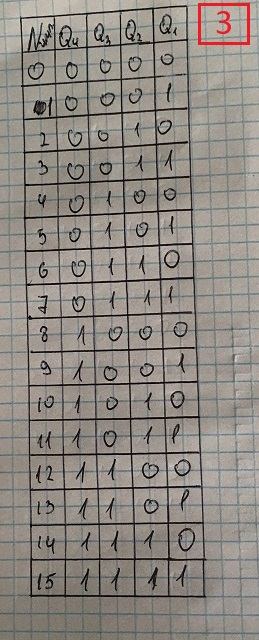 3
№ Q4 Q3 Q2 Q1
0 0 0 0 0
1 0 0 0 1
2 0 0 1 0
3 0 0 1 1
4 0 1 0 0
5 0 1 0 1
6 0 1 1 0
7 0 1 1 1
8 1 0 0 0
9 1 0 0 1
10 1 0 1 0
11 1 0 1 1
12 1 1 0 0
13 1 1 0 1
14 1 1 1 0
15 1 1 1 1